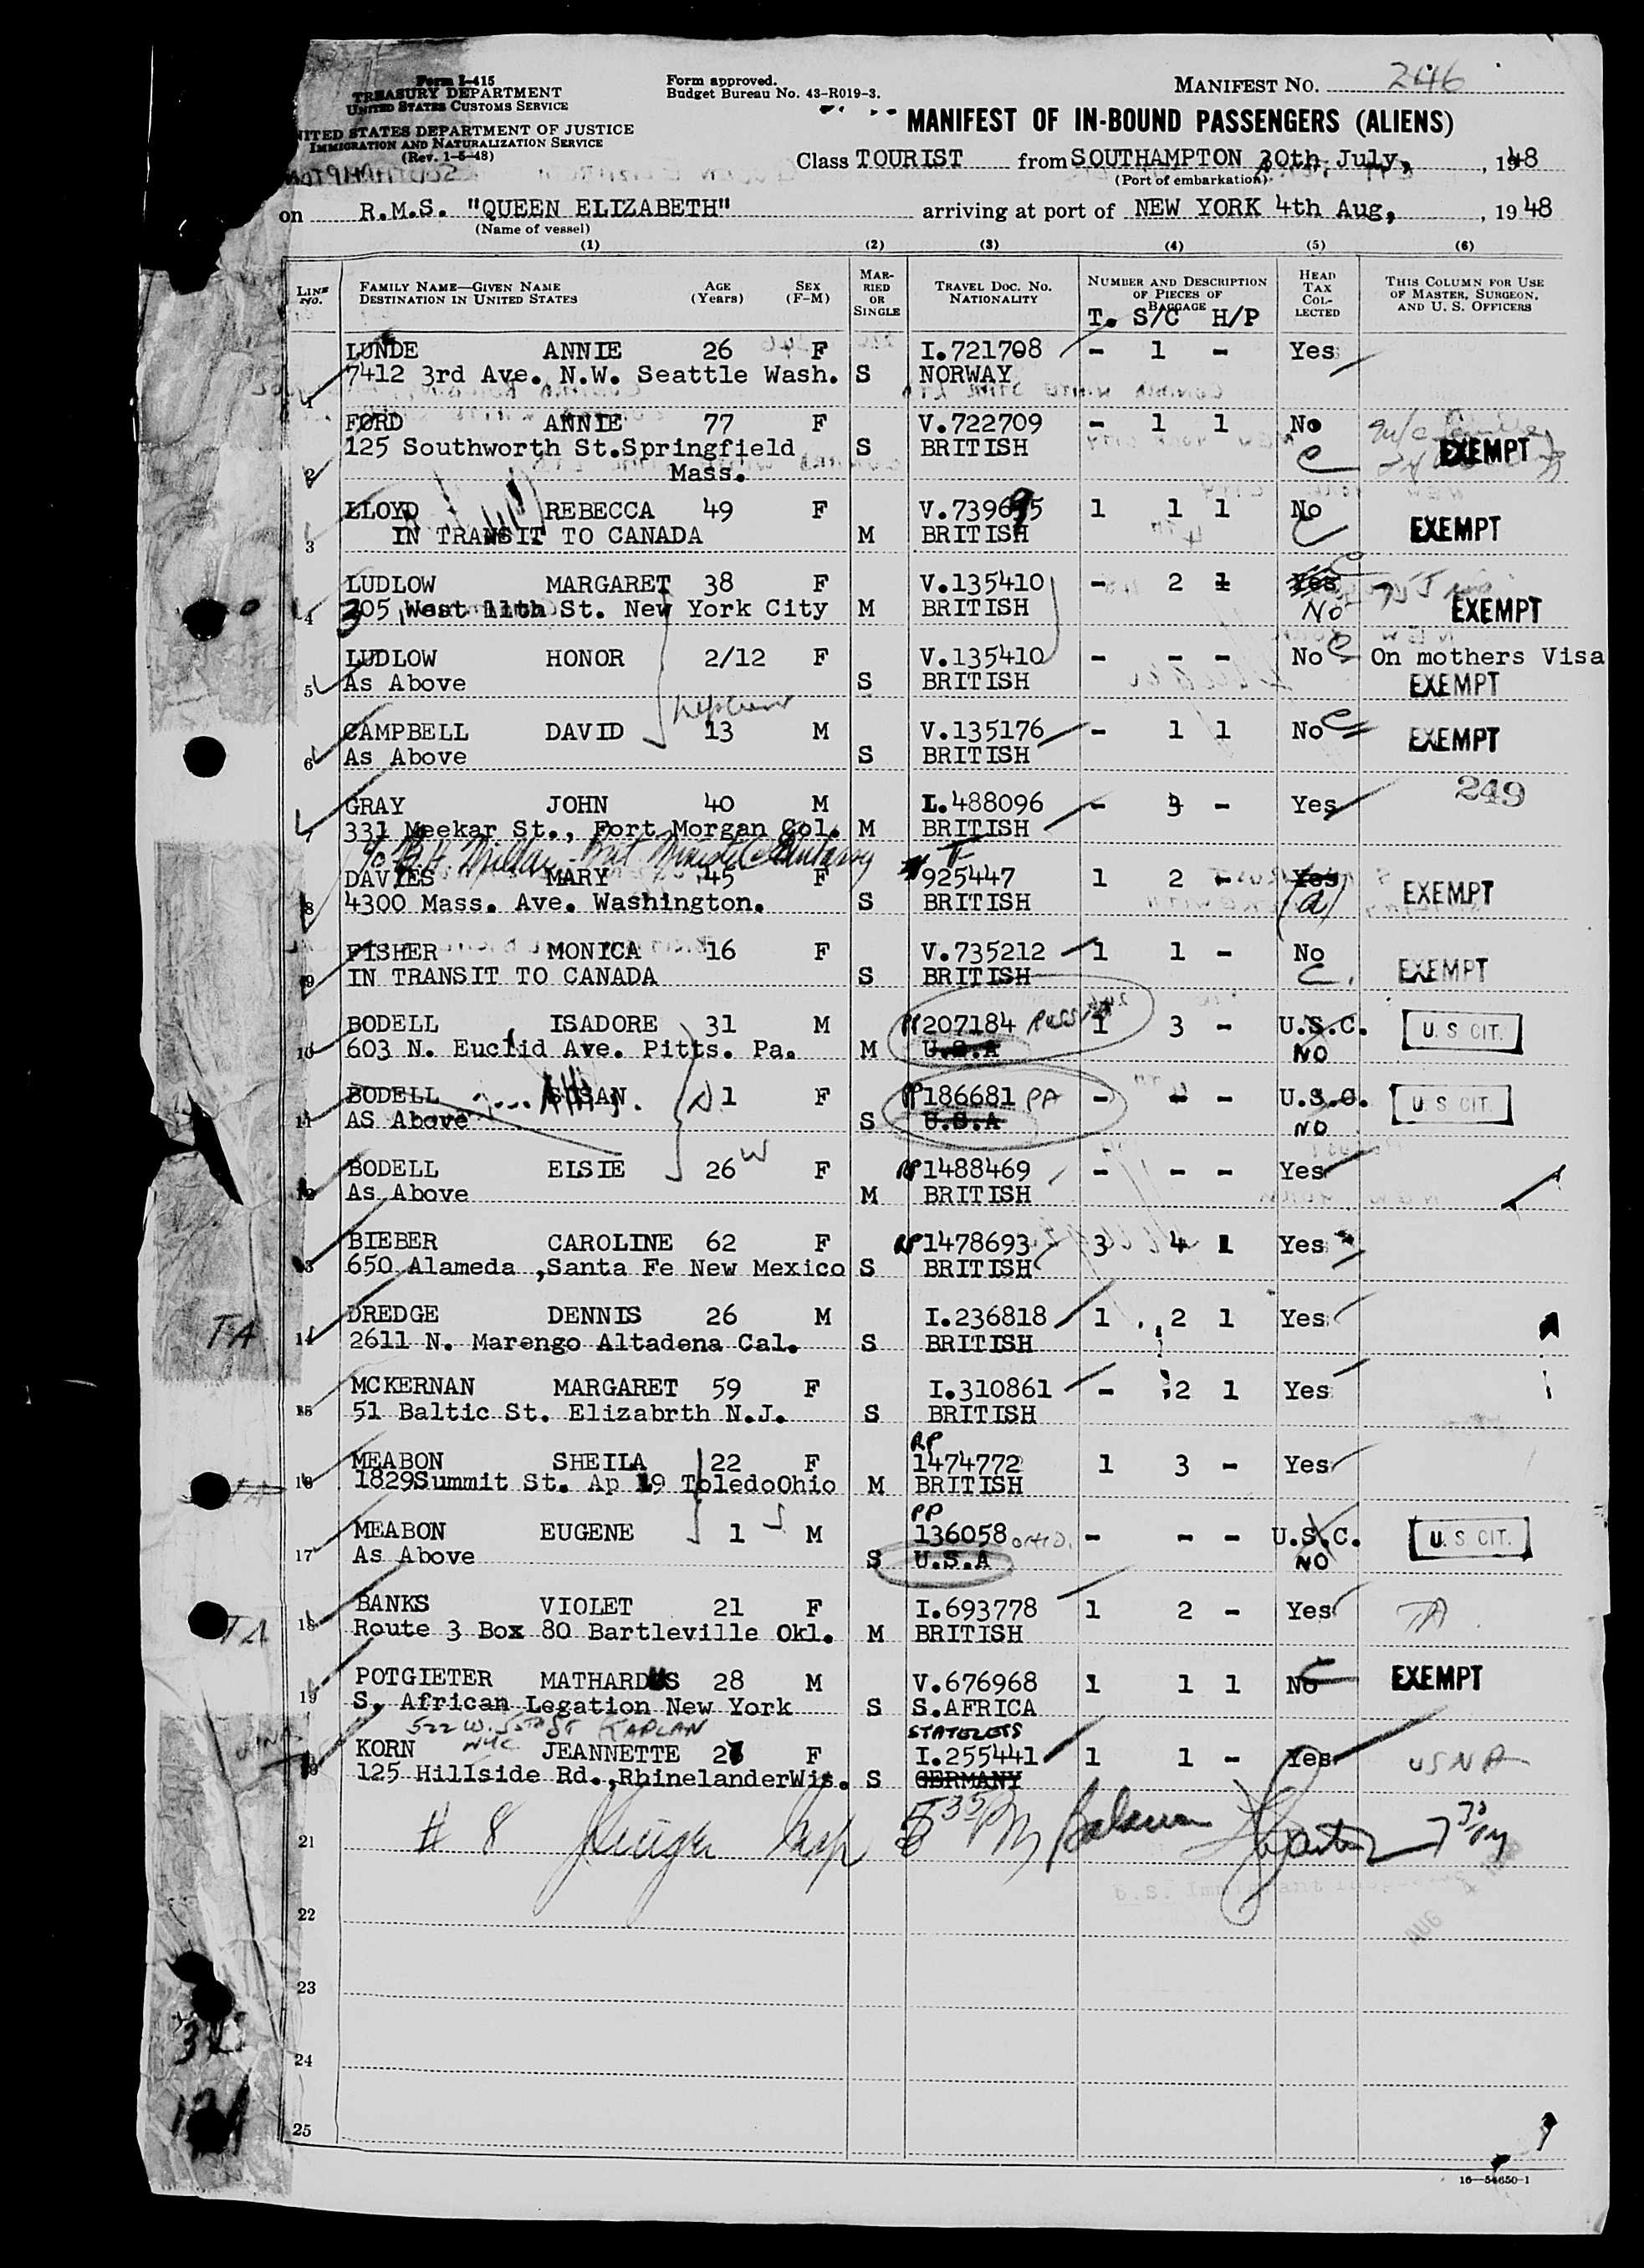 Form I-415
TREASURY DEPARTMENT
UNITED STATES CUSTOMS SERVICE
Form approved.
Budget Bureau No. 43-R019-3.
MANIFEST NO. 246
ITED STATES DEPARTMENT OF JUSTICE
IMMIGRATION AND NATURALIZATION SERVICE
(Rev. 1-5-48)
MANIFEST OF IN-BOUND PASSENGERS (ALIENS)
Class TOURIST from SOUTHAMPTON 30th July, , 1948
(Port of embarkation)
on R.M.S. "QUEEN ELIZABETH" arriving at port of NEW YORK 4th Aug, , 1948
(Name of vessel)
(1) (2) (3) (4) (5) (6)
LINE NO. FAMILY NAME—GIVEN NAME DESTINATION IN UNITED STATES AGE (Years) SEX (F-M) MARRIED OR SINGLE TRAVEL DOC. NO. NATIONALITY NUMBER AND DESCRIPTION OF PIECES OF BAGGAGE HEAD TAX COLLECTED THIS COLUMN FOR USE OF MASTER, SURGEON, AND U. S. OFFICERS
T. S/C H/P
LUNDE ANNIE 26 F I.721708 - 1 - Yes
1 7412 3rd Ave. N.W. Seattle Wash. S NORWAY
FORD ANNIE 77 F V.722709 - 1 1 No
125 Southworth St.Springfield S BRITISH C EXEMPT
2 Mass.
LLOYD REBECCA 49 F V.739695 1 1 1 No
3 IN TRANSIT TO CANADA M BRITISH C EXEMPT
LUDLOW MARGARET 38 F V.135410 - 2 1 Yes
4 305 West 11th St. New York City M BRITISH No EXEMPT
LUDLOW HONOR 2/12 F V.135410 - - - No On mothers Visa
5 As Above S BRITISH EXEMPT
nephew
CAMPBELL DAVID 13 M V.135176 - 1 1 No EXEMPT
6 As Above S BRITISH
249
GRAY JOHN 40 M I.488096 - 3 - Yes
7 331 Meekar St., Fort Morgan Col. M BRITISH
DAVIES MARY 45 F 925447 1 2 - Yes EXEMPT
8 4300 Mass. Ave. Washington. S BRITISH (a)
FISHER MONICA 16 F V.735212 1 1 - No
9 IN TRANSIT TO CANADA S BRITISH C. EXEMPT
BODELL ISADORE 31 M PP 207184 1 3 - U.S.C. U. S CIT.
10 603 N. Euclid Ave. Pitts. Pa. M U.S.A NO
BODELL SUSAN 1 F PP 186681 - - - U.S.C. U. S CIT.
11 AS Above S U.S.A NO
BODELL ELSIE 26 W F PP 1488469 - - - Yes
12 As Above M BRITISH
BIEBER CAROLINE 62 F RP 1478693 3 4 1 Yes
13 650 Alameda ,Santa Fe New Mexico S BRITISH
DREDGE DENNIS 26 M I.236818 1 2 1 Yes
TA 14 2611 N. Marengo Altadena Cal. S BRITISH
MCKERNAN MARGARET 59 F I.310861 - 2 1 Yes
15 51 Baltic St. Elizabrth N.J. S BRITISH
RP
MEABON SHEILA 22 F 1474772 1 3 - Yes
16 1829Summit St. Ap 19 ToledoOhio M BRITISH
PP
MEABON EUGENE 1 M 136058 - - - U.S.C. U. S CIT.
17 As Above S U.S.A NO
BANKS VIOLET 21 F I.693778 1 2 - Yes TA
TA 18 Route 3 Box 80 Bartleville Okl. M BRITISH
POTGIETER MATHARDUS 28 M V.676968 1 1 1 No EXEMPT
19 S. African Legation New York S S.AFRICA
522 W. 55th ST KAPLAN STATELESS
NYC
KORN JEANNETTE 27 F I.255441 1 1 - Yes USNA
125 Hillside Rd.,RhinelanderWis. S GERMANY
21 # 8
22
23
24
25
16—54650-1